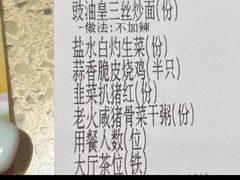 豉油皇三丝炒面(份)
-做法:不加辣
盐水白灼生菜(份)
蒜香脆皮烧鸡(半只)
韭菜扒猪红(份)
老火咸猪骨菜干粥(份)
用餐人数(位)
大厅茶位(铁)